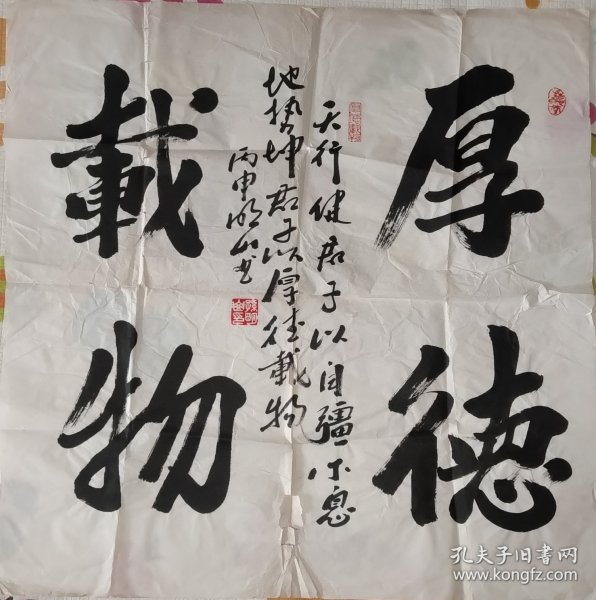 厚德
载物
天行健君子以自疆不息
地势坤君子以厚德载物
丙申明山书
孔夫子旧书网
www.kongfz.com